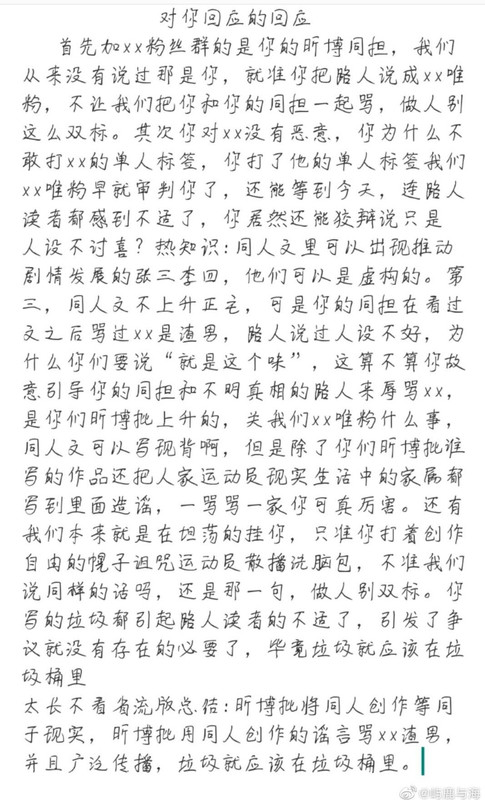 对你回应的回应
首先加xx粉丝群的是你的昕博同担，我们
从来没有说过那是你，就准你把路人说成xx唯
粉，不让我们把你和你的同担一起骂，做人别
这么双标。其次你对xx没有恶意，你为什么不
敢打xx的单人标签，你打了他的单人标签我们
xx唯粉早就审判你了，还能等到今天，连路人
读者都感到不适了，你居然还能狡辩说只是
人设不讨喜？热知识：同人文里可以出现推动
剧情发展的张三李四，他们可以是虚构的。第
三，同人文不上升正主，可是你的同担在看过
文之后骂过xx是渣男，路人说过人设不好，为
什么你们要说“就是这个味”，这算不算你故
意引导你的同担和不明真相的路人来辱骂xx，
是你们昕博批上升的，关我们xx唯粉什么事，
同人文可以写现背啊，但是除了你们昕博批谁
写的作品还把人家运动员现实生活中的家属都
写到里面造谣，一骂骂一家你可真厉害。还有
我们本来就是在坦荡的挂你，只准你打着创作
自由的幌子诅咒运动员散播洗脑包，不准我们
说同样的话吗，还是那一句，做人别双标。你
写的垃圾都引起路人读者的不适了，引发了争
议就没有存在的必要了，毕竟垃圾就应该在垃
圾桶里
太长不看省流版总结：昕博批将同人创作等同
于现实，昕博批用同人创作的谣言骂xx渣男，
并且广泛传播，垃圾就应该在垃圾桶里。